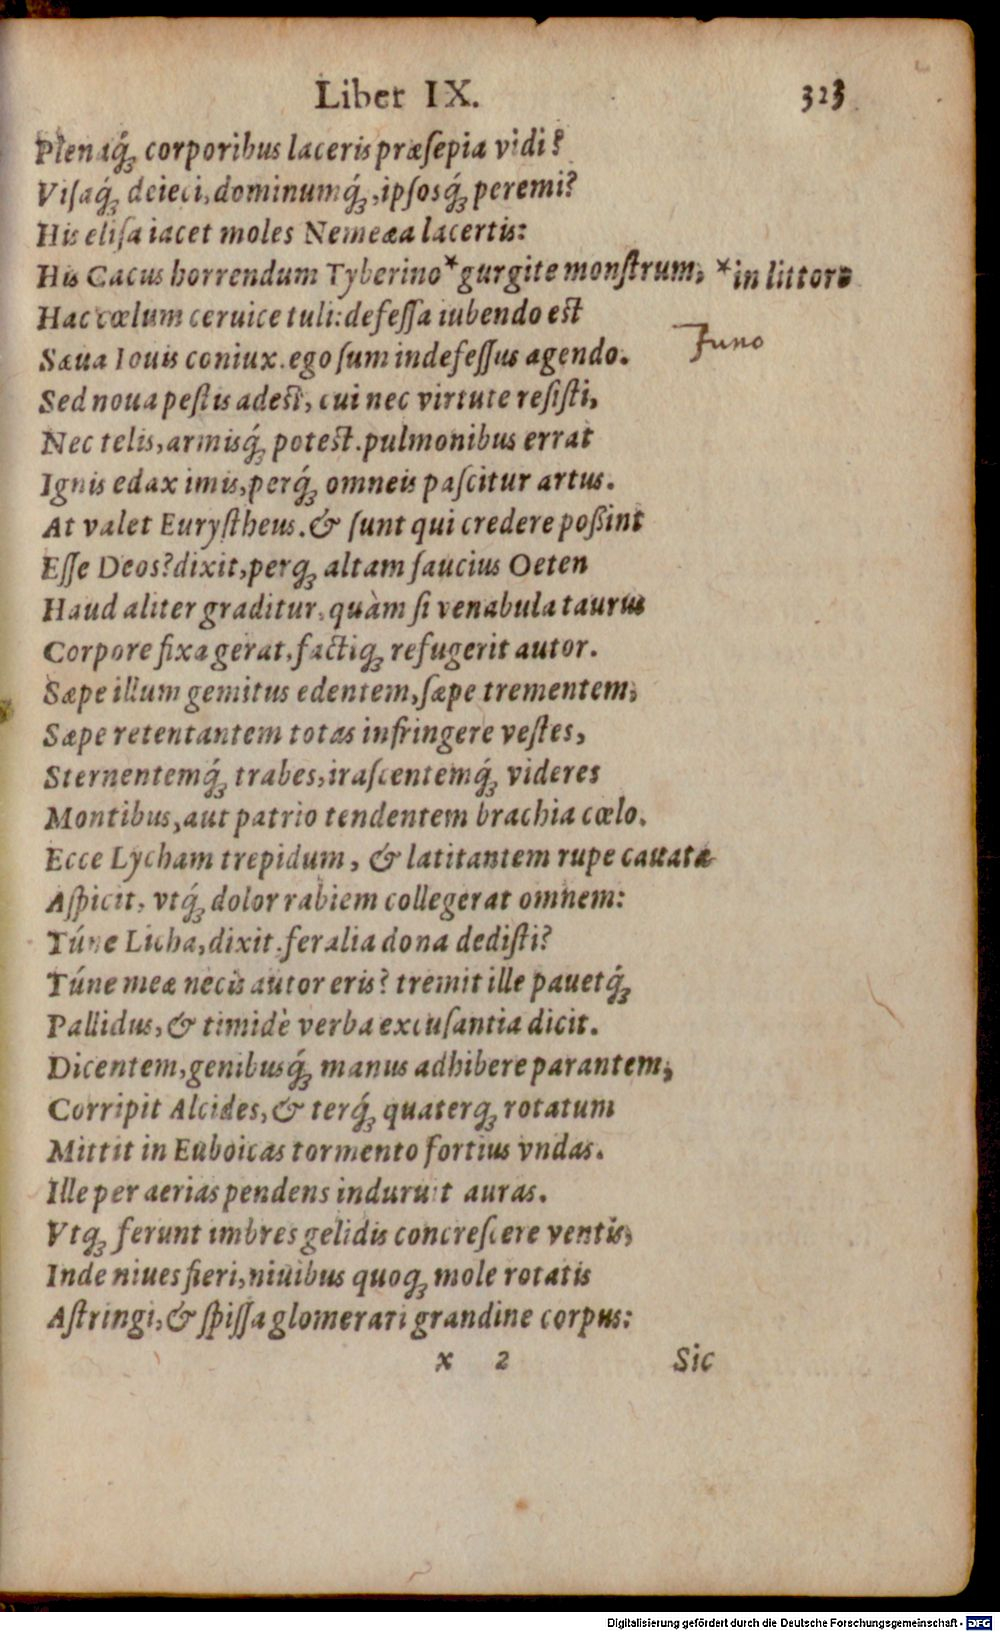 Liber IX. 323
Plenaq́ꝫ corporibus laceris præſepia vidi?
Viſaq́ꝫ deieci, dominumq́ꝫ, ipſosq́ꝫ peremi?
His eliſa iacet moles Nemeæa lacertis:
His Cacus horrendum Tyberino* gurgite monſtrum, *in littore
Hac cœlum ceruice tuli: defeſſa iubendo est
Sæua Iouis coniux. ego ſum indefeſſus agendo.
Juno
Sed noua peſtis adest, cui nec virtute reſiſti,
Nec telis, armisq́ꝫ potest. pulmonibus errat
Ignis edax imis, perq́ꝫ omneis paſcitur artus.
At valet Euryſtheus. & ſunt qui credere poßint
Eſſe Deos? dixit, perqꝫ altam ſaucius Oeten
Haud aliter graditur, quàm ſi venabula taurus
Corpore fixa gerat, factiqꝫ refugerit autor.
Sæpe illum gemitus edentem, ſæpe trementem,
Sæpe retentantem totas infringere veſtes,
Sternentemq́ꝫ trabes, iraſcentemq́ꝫ videres
Montibus, aut patrio tendentem brachia cœlo.
Ecce Lycham trepidum, & latitantem rupe cauata
Aſpicit, vtq́ꝫ dolor rabiem collegerat omnem:
Túne Licha, dixit. feralia dona dediſti?
Túne meæ necis autor eris? tremit ille pauetq́ꝫ
Pallidus, & timidè verba excuſantia dicit.
Dicentem, genibusq́ꝫ manus adhibere parantem,
Corripit Alcides, & terq́ꝫ quaterqꝫ rotatum
Mittit in Euboicas tormento fortius vndas.
Ille per aerias pendens induruit auras.
Vtqꝫ ferunt imbres gelidis concreſcere ventis,
Inde niues fieri, niuibus quoqꝫ mole rotatis
Aſtringi, & ſpiſſa glomerari grandine corpus:
x 2 Sic
Digitalisierung gefördert durch die Deutsche Forschungsgemeinschaft - DFG